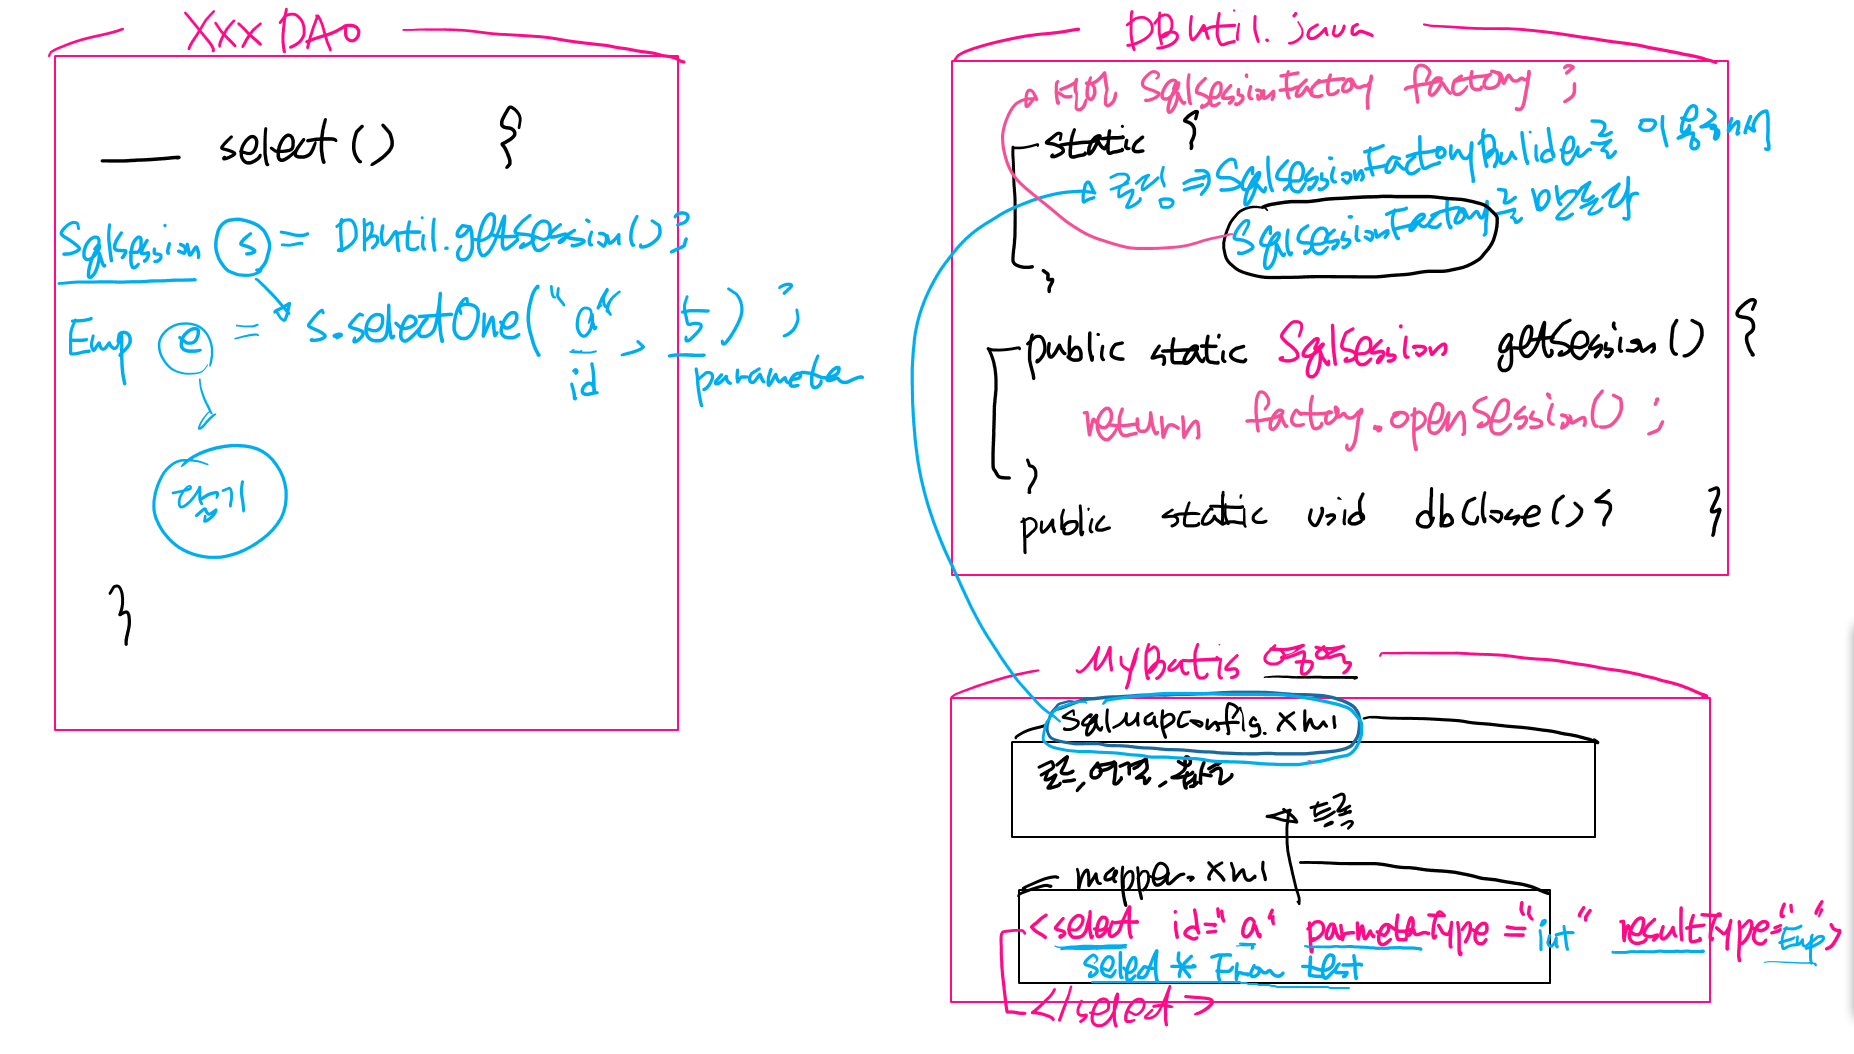 XxxDAO
___ select() {
Sqlsession s = DBUtil.getSession();
Emp e = s.selectOne("a", 5);
id
parameter
닫기
}
DBUtil.java
SqlSessionFactory factory;
static {
로딩 ⇒ SqlSessionFactoryBulider를 이용해서
SqlSessionFactory를 만든다
}
public static SqlSession getSession() {
return factory.openSession();
}
public static void dbClose() { }
MyBatis 영역
SqlMapConfig.xml
로드, 연결,
등록
mapper.xml
<select id="a" parmeterType="int" resultType="Emp">
select * From test
</select>